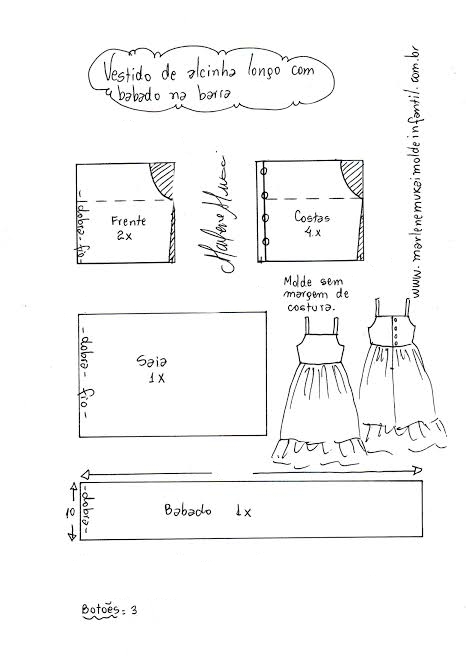 Vestido de alcinha longo com
babado na barra
www.marlenemukaimoldeinfantil.com.br
Marlene Mukai
- dobra - fio
Frente
2x
Costas
4x
Molde sem
margem de
costura.
- dobra - fio -
Saia
1x
10
- dobra -
Babado 1x
Botões: 3